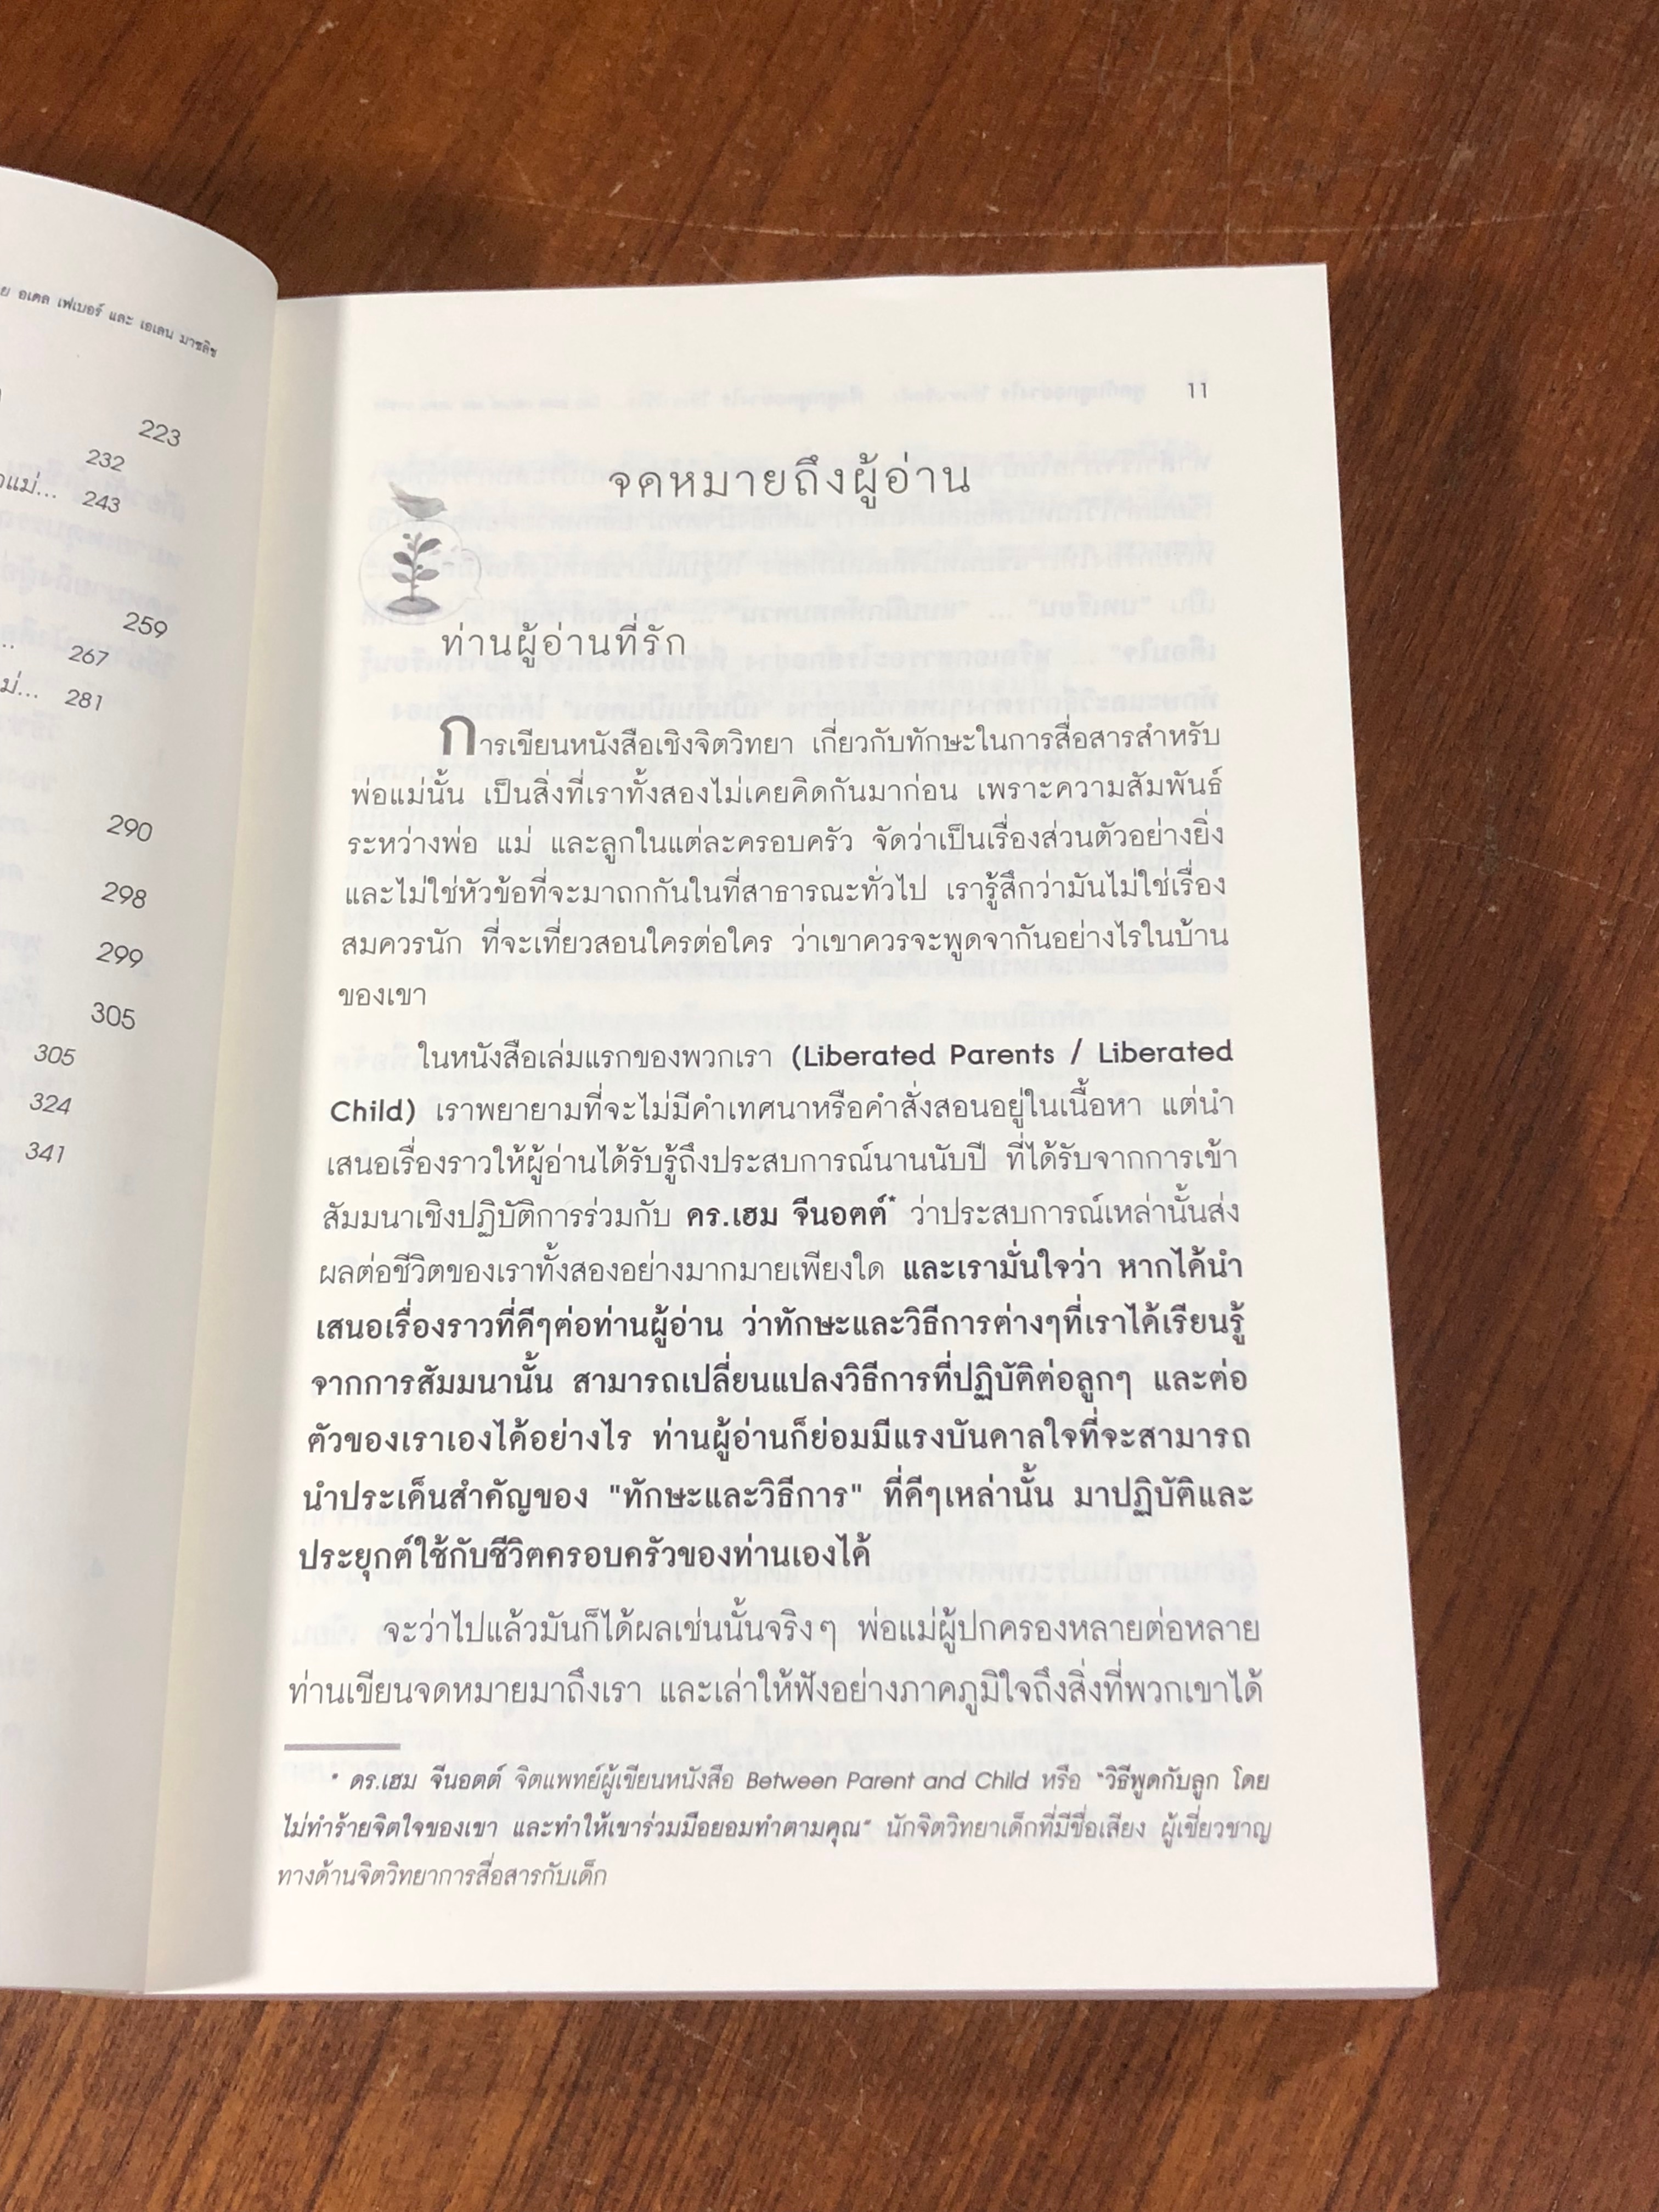 อเดล เฟเบอร์ และ เอเลน มาซลิช
223
232
243
259
267
281
290
298
299
305
305
324
341
11
จดหมายถึงผู้อ่าน
ท่านผู้อ่านที่รัก
การเขียนหนังสือเชิงจิตวิทยา เกี่ยวกับทักษะในการสื่อสารสำหรับ
พ่อแม่นั้น เป็นสิ่งที่เราทั้งสองไม่เคยคิดกันมาก่อน เพราะความสัมพันธ์
ระหว่างพ่อ แม่ และลูกในแต่ละครอบครัว จัดว่าเป็นเรื่องส่วนตัวอย่างยิ่ง
และไม่ใช่หัวข้อที่จะมาถกกันในที่สาธารณะทั่วไป เรารู้สึกว่ามันไม่ใช่เรื่อง
สมควรนัก ที่จะเที่ยวสอนใครต่อใคร ว่าเขาควรจะพูดจากันอย่างไรในบ้าน
ของเขา
ในหนังสือเล่มแรกของพวกเรา (Liberated Parents / Liberated
Child) เราพยายามที่จะไม่มีคำเทศนาหรือคำสั่งสอนอยู่ในเนื้อหา แต่นำ
เสนอเรื่องราวให้ผู้อ่านได้รับรู้ถึงประสบการณ์นานนับปี ที่ได้รับจากการเข้า
สัมมนาเชิงปฏิบัติการร่วมกับ ดร.เฮม จีนอตต์* ว่าประสบการณ์เหล่านั้นส่ง
ผลต่อชีวิตของเราทั้งสองอย่างมากมายเพียงใด และเรามั่นใจว่า หากได้นำ
เสนอเรื่องราวที่ดีๆต่อท่านผู้อ่าน ว่าทักษะและวิธีการต่างๆที่เราได้เรียนรู้
จากการสัมมนานั้น สามารถเปลี่ยนแปลงวิธีการที่ปฏิบัติต่อลูกๆ และต่อ
ตัวของเราเองได้อย่างไร ท่านผู้อ่านก็ย่อมมีแรงบันดาลใจที่จะสามารถ
นำประเด็นสำคัญของ "ทักษะและวิธีการ" ที่ดีๆเหล่านั้น มาปฏิบัติและ
ประยุกต์ใช้กับชีวิตครอบครัวของท่านเองได้
จะว่าไปแล้วมันก็ได้ผลเช่นนั้นจริงๆ พ่อแม่ผู้ปกครองหลายต่อหลาย
ท่านเขียนจดหมายมาถึงเรา และเล่าให้ฟังอย่างภาคภูมิใจถึงสิ่งที่พวกเขาได้
* ดร.เฮม จีนอตต์ จิตแพทย์ผู้เขียนหนังสือ Between Parent and Child หรือ "วิธีพูดกับลูก โดย
ไม่ทำร้ายจิตใจของเขา และทำให้เขาร่วมมือยอมทำตามคุณ" นักจิตวิทยาเด็กที่มีชื่อเสียง ผู้เชี่ยวชาญ
ทางด้านจิตวิทยาการสื่อสารกับเด็ก